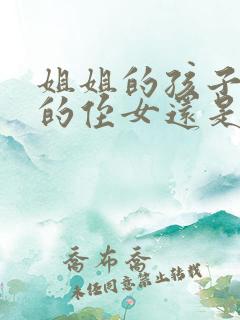 姐姐的孩子
的侄女還是
喬布喬
未任同意禁止转载